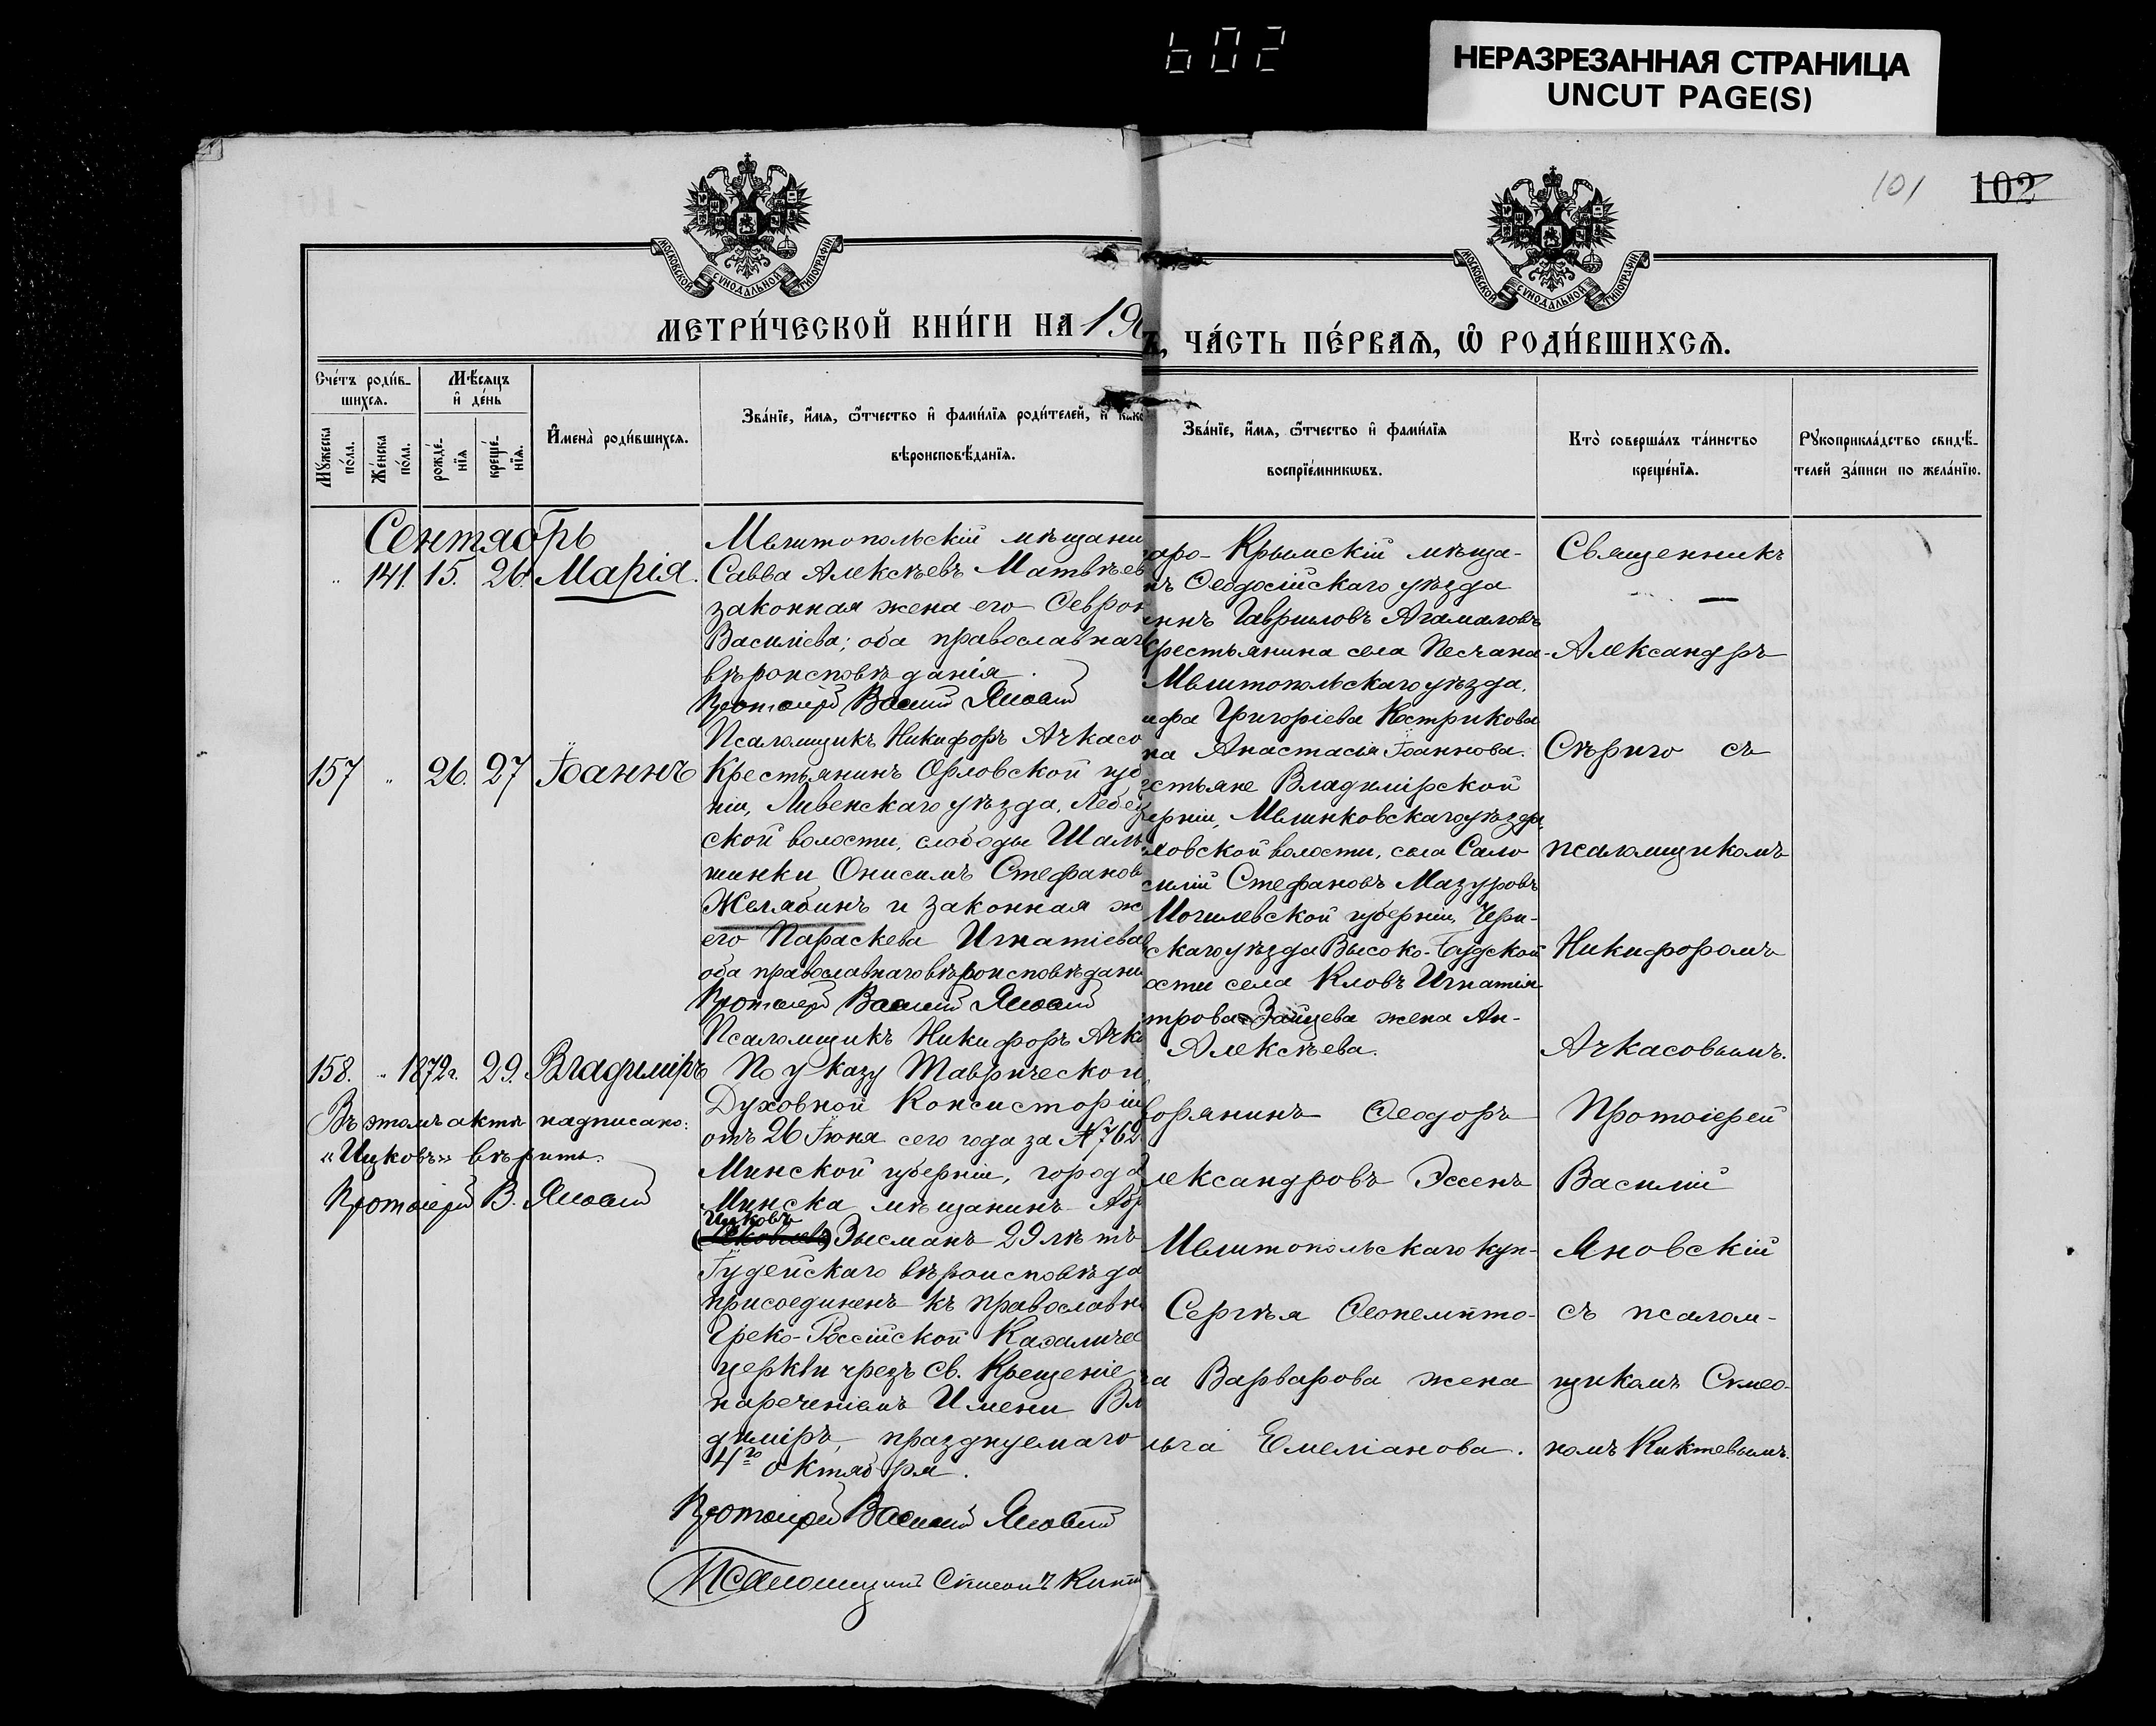 602
НЕРАЗРЕЗАННАЯ СТРАНИЦА
UNCUT PAGE(S)
101
102
МОСКОВСКОЙ СѴНОДАЛЬНОЙ ТИПОГРАФІИ
МОСКОВСКОЙ СѴНОДАЛЬНОЙ ТИПОГРАФІИ
МЕТРИ́ЧЕСКОЙ КНИ́ГИ НА 190
Ъ, ЧА́СТЬ ПЕ́РВАЯ, Ѡ РОДИ́ВШИХСЯ.
Сче́тъ роди́в-
шихся.
Мѣ́сяцъ
и де́нь
Мꙋжеска по́ла.
Же́нска по́ла.
рожде́-
нїя
креще́-
нїя.
Имена̀ роди́вшихся.
Зва́нїе, и́мя, ѻ́тчество и фами́лїя роди́телей, и како
вѣроисповѣ́данїя.
Зва́нїе, и́мя, ѻ́тчество и фами́лїя
воспрїе́мникѡвъ.
Кто̀ соверша́лъ та́инство
креще́нїя.
Рꙋкоприкла́дство свидѣ́-
телей за́писи по жела́нїю.
Сентябрь
" 141. 15. 26. Марія.
Мелитопольскій мѣщани
Савва Алексѣевъ Матвѣев
законная жена его Феврон
Василіева; оба православнаг
вѣроисповѣданія.
Протоіерей Василій Яновскій
Псаломщикъ Никифоръ Ачкасо
аро-Крымскій мѣща-
нъ Ѳеодосійскаго уѣзда
Гавриловъ Агамаловъ
Крестьянина села Песчана-
Мелитопольскаго уѣзда,
ифа Григоріева Кострикова
на Анастасія Іоаннова.
Священникъ
Александръ
Сѣриго съ
псаломщикомъ
Никифоромъ
Ачкасовымъ.
157 " 26. 27 Іоаннъ
Крестьянинъ Орловской губ
ніи, Ливенскаго уѣзда, Лебед
ской волости, слободы Шаль
шинки Онисимъ Стефанов
Желябинъ и законная ж
его Параскева Игнатіева
оба православнаго вѣроисповѣдані
Протоіерей Василій Яновскій
Псаломщикъ Никифоръ Ачка
естьяне Владимірской
ерніи, Меленковскаго уѣзда,
ловской волости, села Сало
силій Стефановъ Мазуровъ
Могилевской губерніи, Чери-
скаго уѣзда Высоко-Будской
ости села Кловъ Игнатія
трова Зайцева жена Ан-
Алексѣева.
158. " 1872г. 29. Владиміръ
Въ этомъ актѣ надписано:
«Ицковъ» вѣрить.
Протоіерей В. Яновскій
По указу Таврической
Духовной Консисторіи
отъ 26 Іюня сего года за №762
Минской губерніи, города
Минска мѣщанинъ Абр
Ицковъ
Зысманъ 29 лѣтъ
Іудейскаго вѣроисповѣда
присоединенъ къ православн
Греко-Россійской Каѳоличес
церкви чрезъ Св. Крещеніе
нареченіемъ Имени Вл
диміръ, празднуемаго
4го октября.
Протоіерей Василій Яновскій
Псаломщикъ Симеонъ Кикт
ворянинъ Ѳеодоръ
лександровъ Эссенъ
Мелитопольскаго куп-
Сергѣя Ѳеопемпто-
а Варварова жена
льга Емеліанова.
Протоіерей
Василій
Яновскій
съ псалом-
щикомъ Симео-
номъ Киктевымъ.